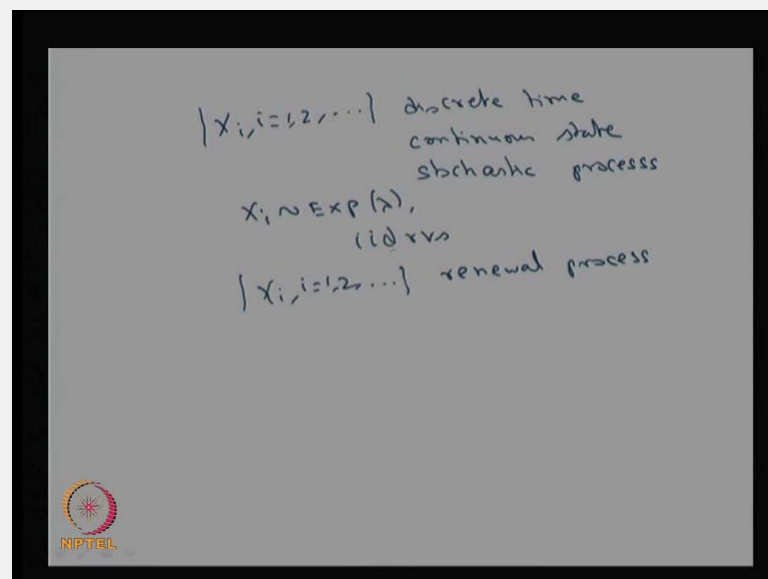 {Xi, i=1,2,...} discrete time
continuous state
stochastic processs
Xi ~ Exp(λ),
iid rvs
{Xi, i=1,2,...} renewal process
NPTEL